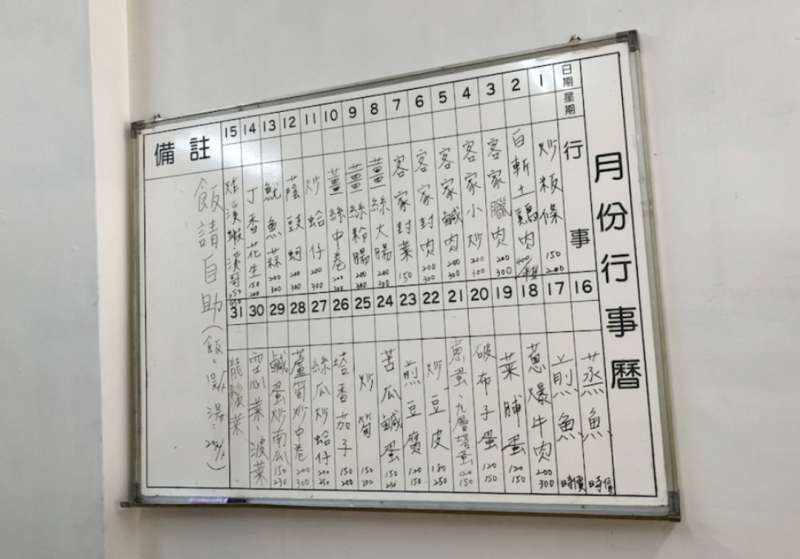 月份行事曆
日期 星期
行事
1 炒粄條 150 200
2 白斬土雞肉
3 客家臘肉 200 300
4 客家小炒 220 300
5 客家鹹肉 200 300
6 客家封肉 200 300
7 客家封菜 150
8 薑絲大腸 200 300
9 薑絲粉腸 200 300
10 薑絲中卷 200 300
11 炒蛤仔 200 300
12 蔭豉蚵 200 300
13 魷魚蒜 200 300
14 丁香花生 150
15 炸溪蝦、溪哥
16 蒸魚 時價
17 煎魚 時價
18 蔥爆牛肉 200 300
19 菜脯蛋 120 150
20 破布子蛋 120 150
21 蔥蛋、九層塔蛋 120 150
22 炒豆皮 180 250
23 煎豆腐 120 150
24 苦瓜鹹蛋 150
25 炒筍 150 200
26 塔香茄子 150 200
27 絲瓜炒蛤仔 200 250
28 蘆筍炒中卷 200 300
29 鹹蛋炒南瓜 150 230
30 空心菜、波菜
31 龍鬚菜
備註
飯請自助(飯:10/1、湯:20/1)